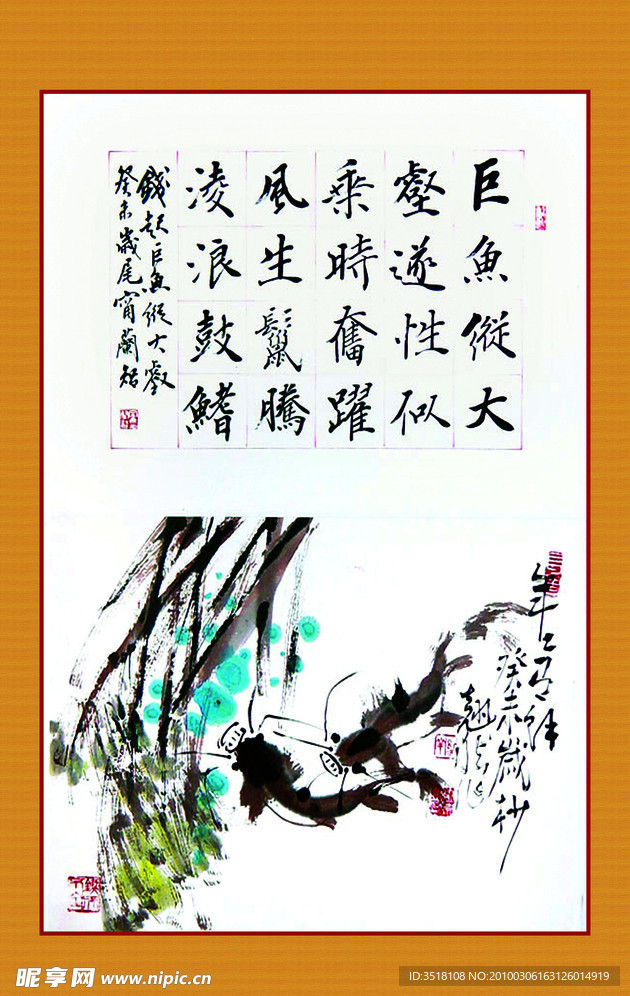 巨魚縱大
壑遂性似
乘時奮躍
風生鬣騰
淩浪鼓鰭
錢起巨魚縱大壑
癸未歲尾
年
癸未歲杪
昵享网 www.nipic.cn
ID:3518108 NO:20100306163126014919